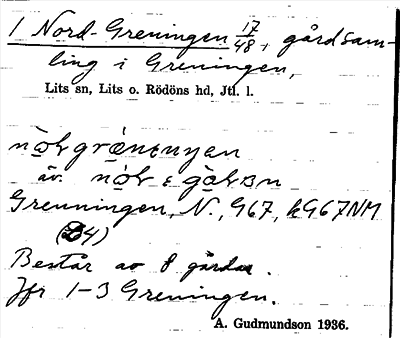 1 Nord-Greningen 17/48, gårdsam-
ling i Greningen,
Lits sn, Lits o. Rödöns hd, Jtl. l.
äv.
Grenningen, N., G67, hG67NM
Består av 8 gårdar.
Jfr 1-3 Greningen.
A. Gudmundson 1936.